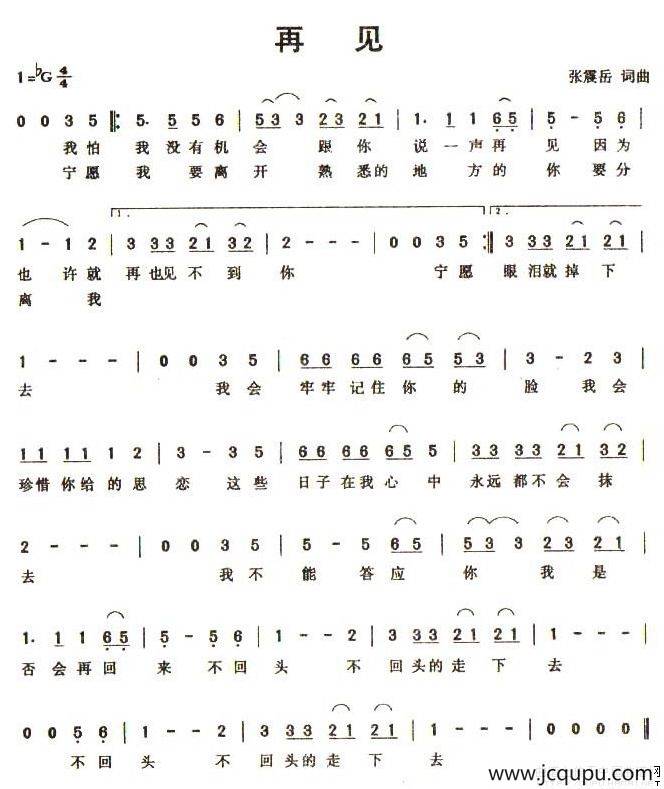 再 见
1=♭G 4/4 张震岳 词曲
0 0 3 5 |: 5· 5 5 6 | 5 3 3 2 3 2 1 | 1· 1 1 6 5 | 5 - 5 6 |
我怕 我 没有机 会 跟你 说 一声再 见 因为
宁愿 我 要离 开 熟悉的 地 方的 你 要分
1. 2.
1 - 1 2 | 3 3 3 2 1 3 2 | 2 - - - | 0 0 3 5 :| 3 3 3 2 1 2 1 |
也 许就 再也见不到 你 宁愿 眼泪就掉下
离 我
1 - - - | 0 0 3 5 | 6 6 6 6 6 5 5 3 | 3 - 2 3 |
去 我会 牢牢记住你 的 脸 我会
1 1 1 1 1 2 | 3 - 3 5 | 6 6 6 6 6 5 5 | 3 3 3 3 2 1 3 2 |
珍惜你给的思 恋 这些 日子在我心 中 永远都不会 抹
2 - - - | 0 0 3 5 | 5 - 5 6 5 | 5 3 3 2 3 2 1 |
去 我不 能 答应 你 我 是
1· 1 1 6 5 | 5 - 5 6 | 1 - - 2 | 3 3 3 2 1 2 1 | 1 - - - |
否会再回 来 不回 头 不 回头的走 下 去
0 0 5 6 | 1 - - 2 | 3 3 3 2 1 2 1 | 1 - - - | 0 0 0 0 ||
不回 头 不 回头的走 下 去
www.jcqupu.com